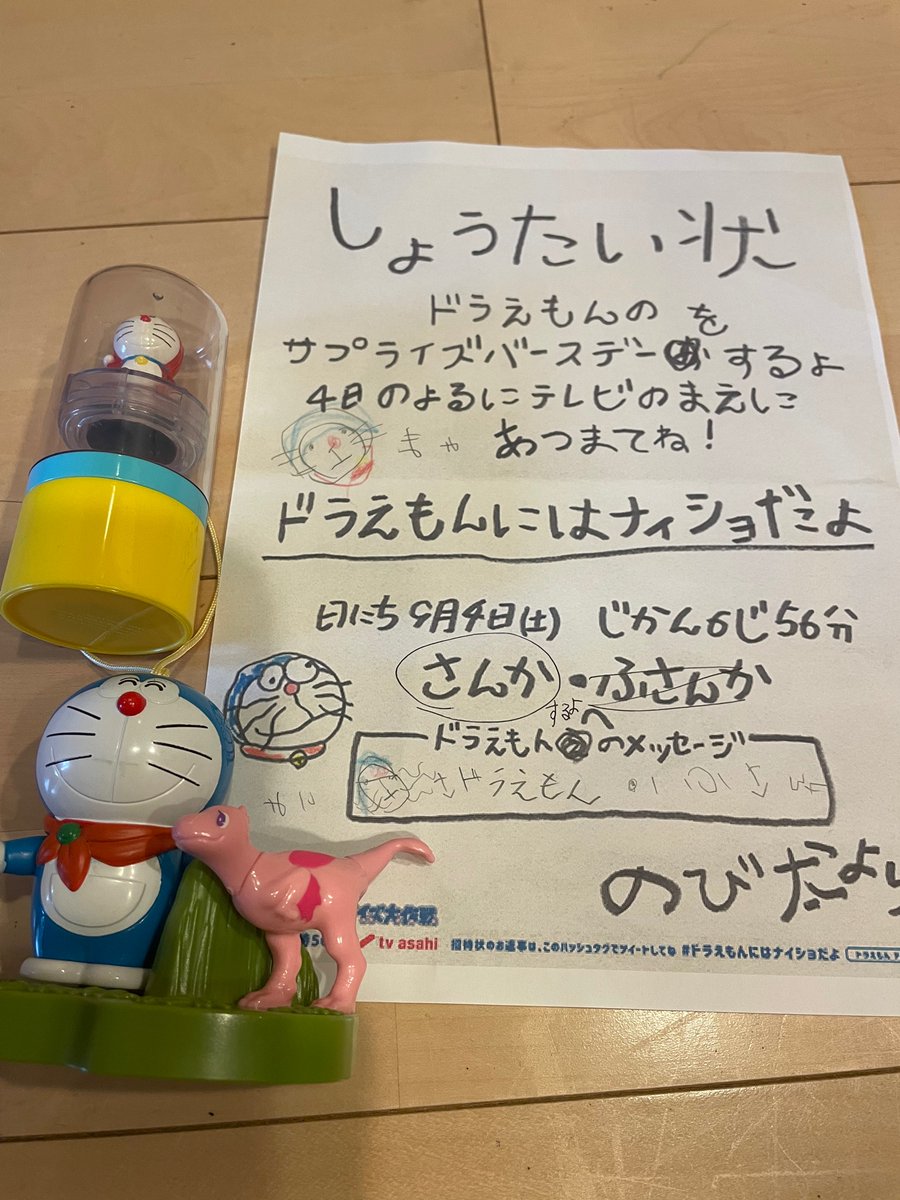 しょうたい状
ドラえもんのを
サプライズバースデーするよ
4日のよるにテレビのまえに
まや
あつまてね!
ドラえもんにはナイショだよ
日にち9月4日(土) じかん6じ56分
さんか・ふさんか
するよ
へ
ドラえもんのメッセージ
ドラえもん
のびたより
イズ大作戦
tv asahi 招待状のお返事は、このハッシュタグでツイートしてね #ドラえもんにはナイショだよ ドラえもん